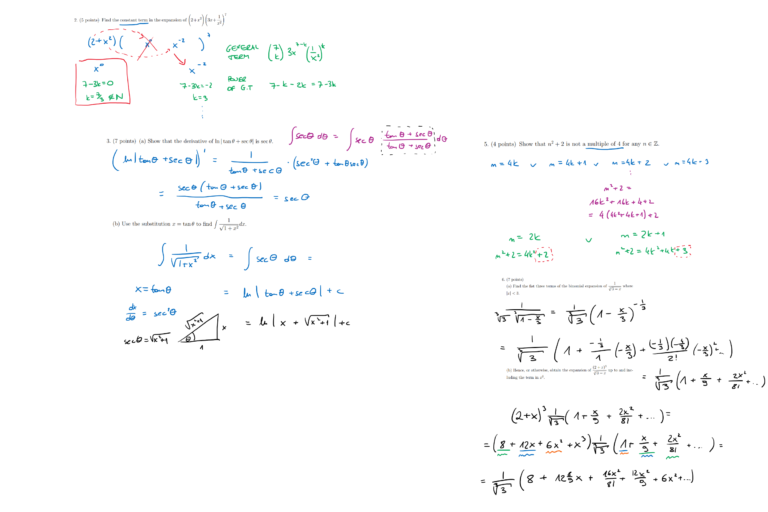 2. (5 points) Find the constant term in the expansion of (2 + x²)(3x + 1/x²)⁷
(2+x²)( x x⁻² )⁷
GENERAL TERM (7 k) 3x⁷⁻ᵏ (1/x²)ᵏ
x⁰ x⁻²
7-3k=0 7-3k=-2 POWER OF G.T 7-k-2k = 7-3k
k=7/3 ∉ N k=3
3. (7 points) (a) Show that the derivative of ln | tan θ + sec θ| is sec θ.
∫secθ dθ = ∫secθ · (tanθ+secθ)/(tanθ+secθ) dθ
(ln|tanθ+secθ|)' = 1/(tanθ+secθ) · (sec²θ + tanθsecθ)
= secθ(tanθ+secθ)/(tanθ+secθ) = secθ
(b) Use the substitution x = tan θ to find ∫ 1/√(1 + x²) dx.
∫ 1/√(1+x²) dx = ∫ secθ dθ =
x=tanθ = ln|tanθ+secθ|+c
dx/dθ = sec²θ
secθ=√(x²+1) √(x²+1) x θ 1 = ln|x + √(x²+1)|+c
5. (4 points) Show that n² + 2 is not a multiple of 4 for any n ∈ Z.
n=4k ∨ n=4k+1 ∨ n=4k+2 ∨ n=4k+3
n²+2 =
16k²+16k+4+2
= 4(4k²+4k+1)+2
n=2k ∨ n=2k+1
n²+2=4k²+2 n²+2=4k²+4k+3
6. (7 points)
(a) Find the first three terms of the binomial expansion of where
|x| < 3.
1/(∛3 ∛(1-x/3)) = 1/∛3 (1-x/3)^(-1/3)
= 1/∛3 (1 + (-1/3)/1 (-x/3) + (-1/3)(-4/3)/2! (-x/3)² + ...)
(b) Hence, or otherwise, obtain the expansion of up to and including the term in x².
= 1/∛3 (1 + x/9 + 2x²/81 + ...)
(2+x)³ 1/∛3 (1 + x/9 + 2x²/81 + ...) =
= (8 + 12x + 6x² + x³) 1/∛3 (1 + x/9 + 2x²/81 + ...) =